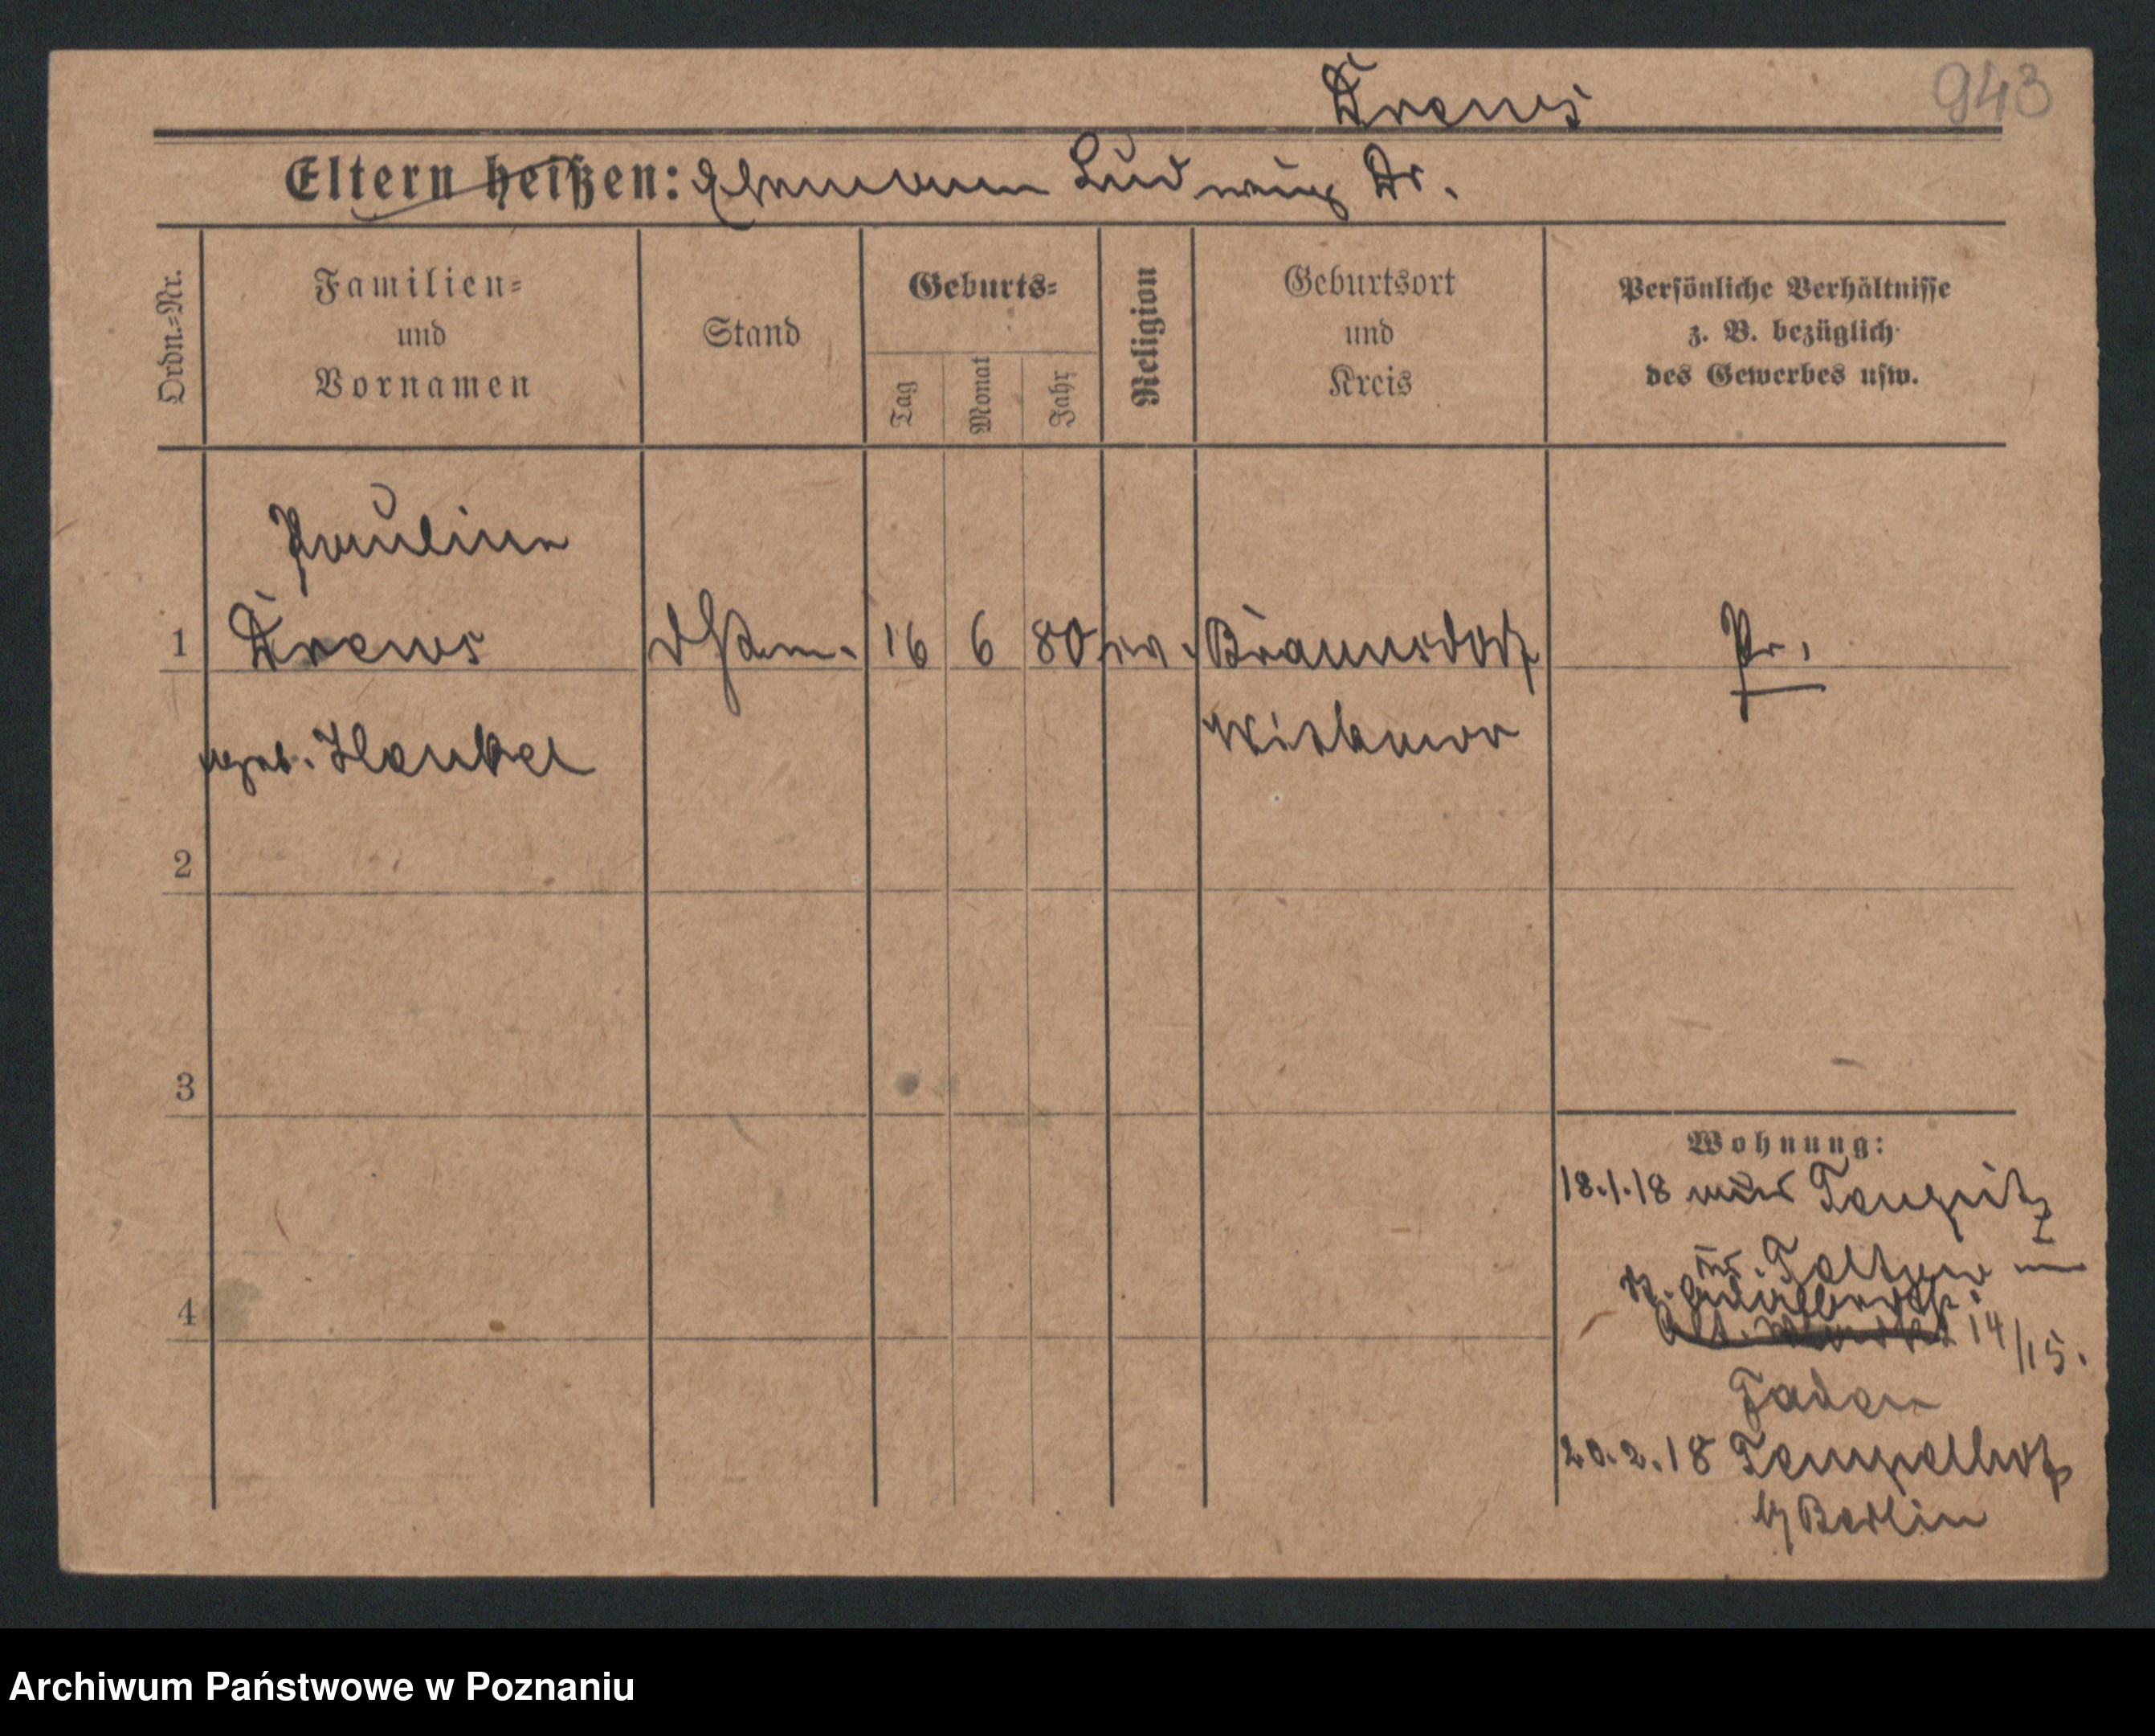 Drews
943
Eltern heißen: Ehemann Ludwig Dr.
Ordn.-Nr.
Familien-
und
Vornamen
Stand
Geburts-
Tag
Monat
Jahr
Religion
Geburtsort
und
Kreis
Persönliche Verhältnisse
z. B. bezüglich
des Gewerbes usw.
Pauline
1 Drews 16 6 80 ev. Braunsdorf Pr.
geb. Henkel
2
3
Wohnung:
18.1.18 aus Teupitz
Kr. Teltow in
4
14/15.
20.2.18 Tempelhof
b/ Berlin
Archiwum Państwowe w Poznaniu